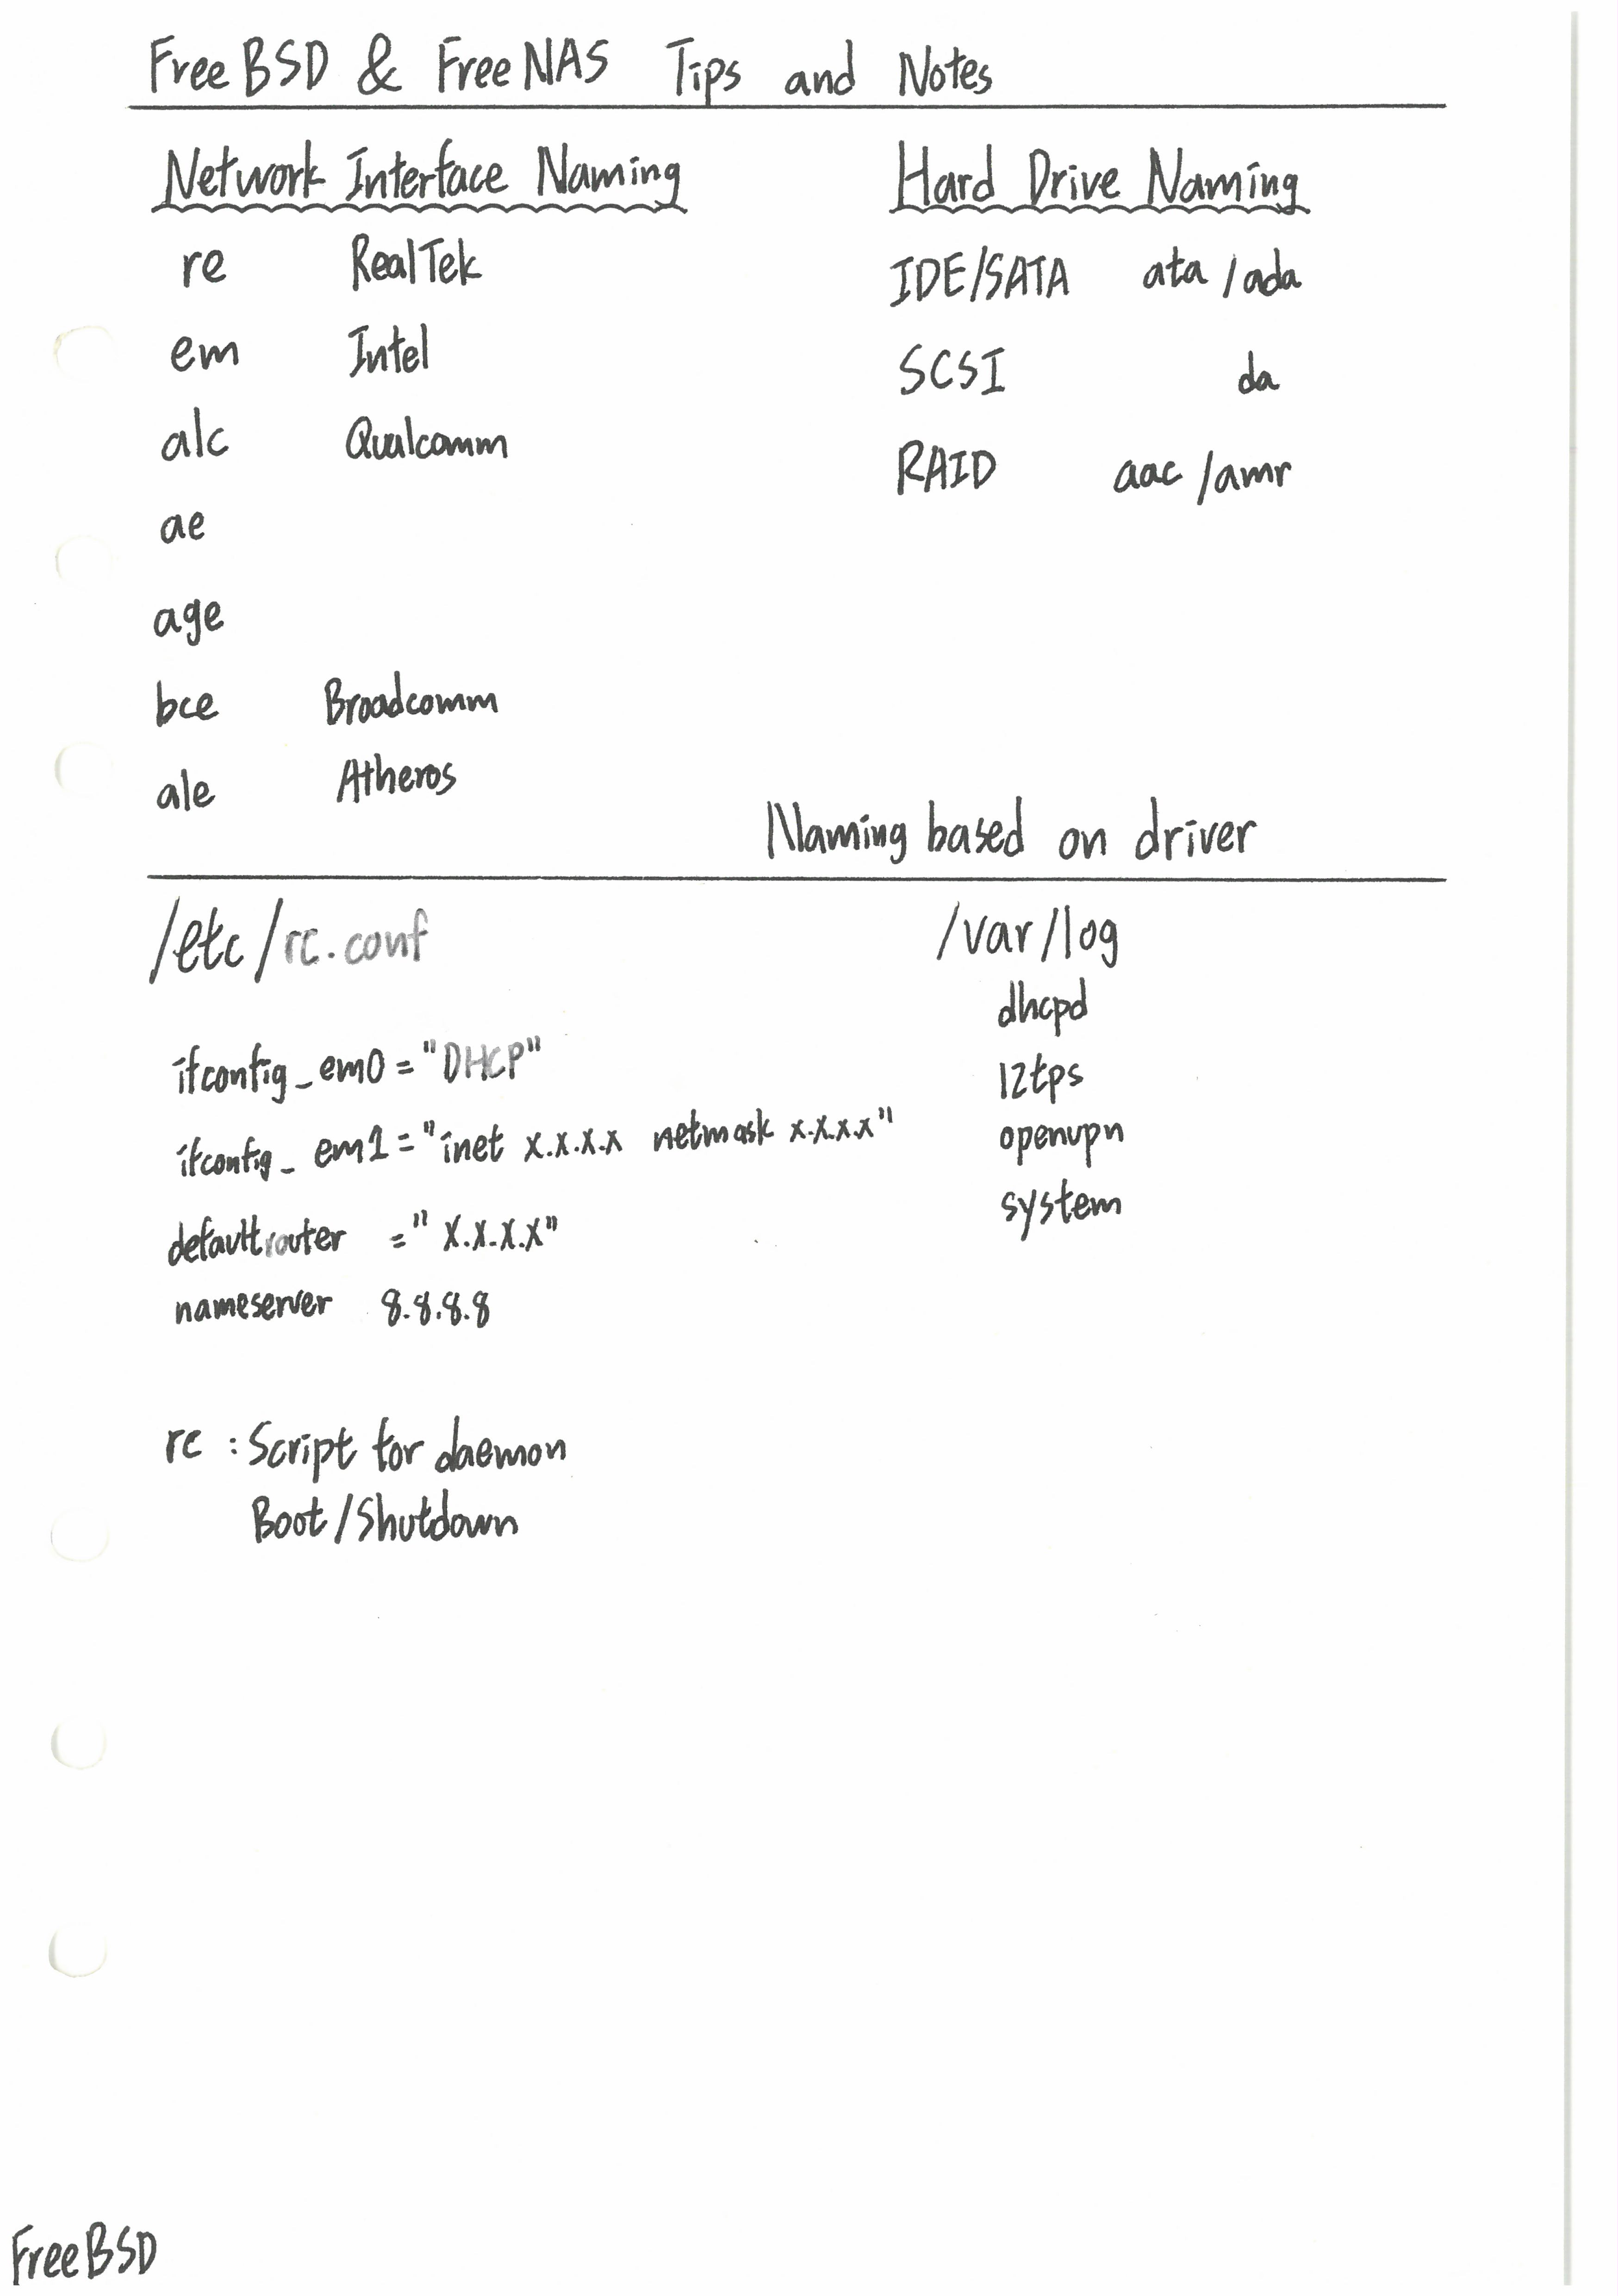 FreeBSD & FreeNAS Tips and Notes
Network Interface Naming
re RealTek
em Intel
alc Qualcomm
ae
age
bce Broadcomm
ale Atheros
Hard Drive Naming
IDE/SATA ata / ada
SCSI da
RAID aac / amr
Naming based on driver
/etc/rc.conf
ifconfig_em0 = "DHCP"
ifconfig_em1 = "inet x.x.x.x netmask x.x.x.x"
defaultrouter = "x.x.x.x"
nameserver 8.8.8.8
rc : Script for daemon
Boot/Shutdown
/var/log
dhcpd
l2tps
openvpn
system
FreeBSD